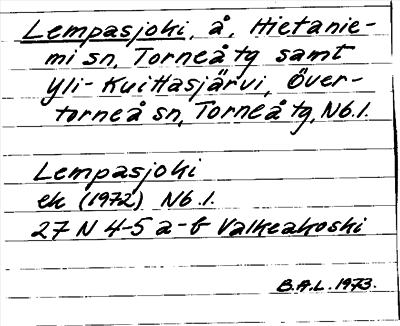 Lempasjoki, å, Hietanie-
mi sn, Torneå tg samt
Yli-Kuittasjärvi, Över-
torneå sn, Torneå tg, Nb.l.
Lempasjoki
ek (1972) Nb.l.
27 N 4-5 a-b Valkeakoski
B.A.L. 1973.